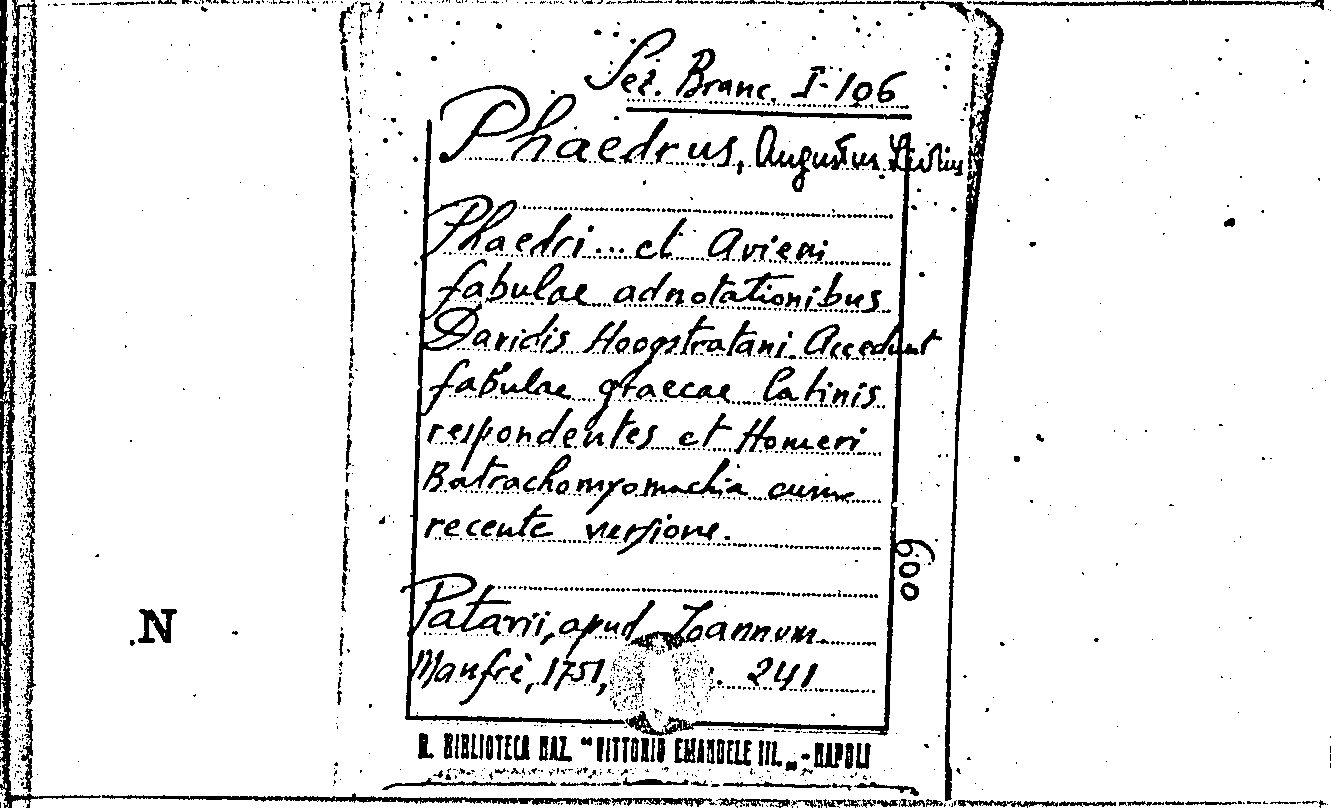 Sez. Branc. I-106
Phaedrus, Augustus Liberius
Phaedri... et Avieni
fabulae adnotationibus
Davidis Hoogstratani. Accedunt
fabulae graecae latinis
respondentes et Homeri
Batrachomyomachia cum
recente versione.
600
Patavii, apud Joannem
Manfrè, 1751, . 241
N
R. BIBLIOTECA NAZ. "VITTORIO EMANUELE III." - NAPOLI